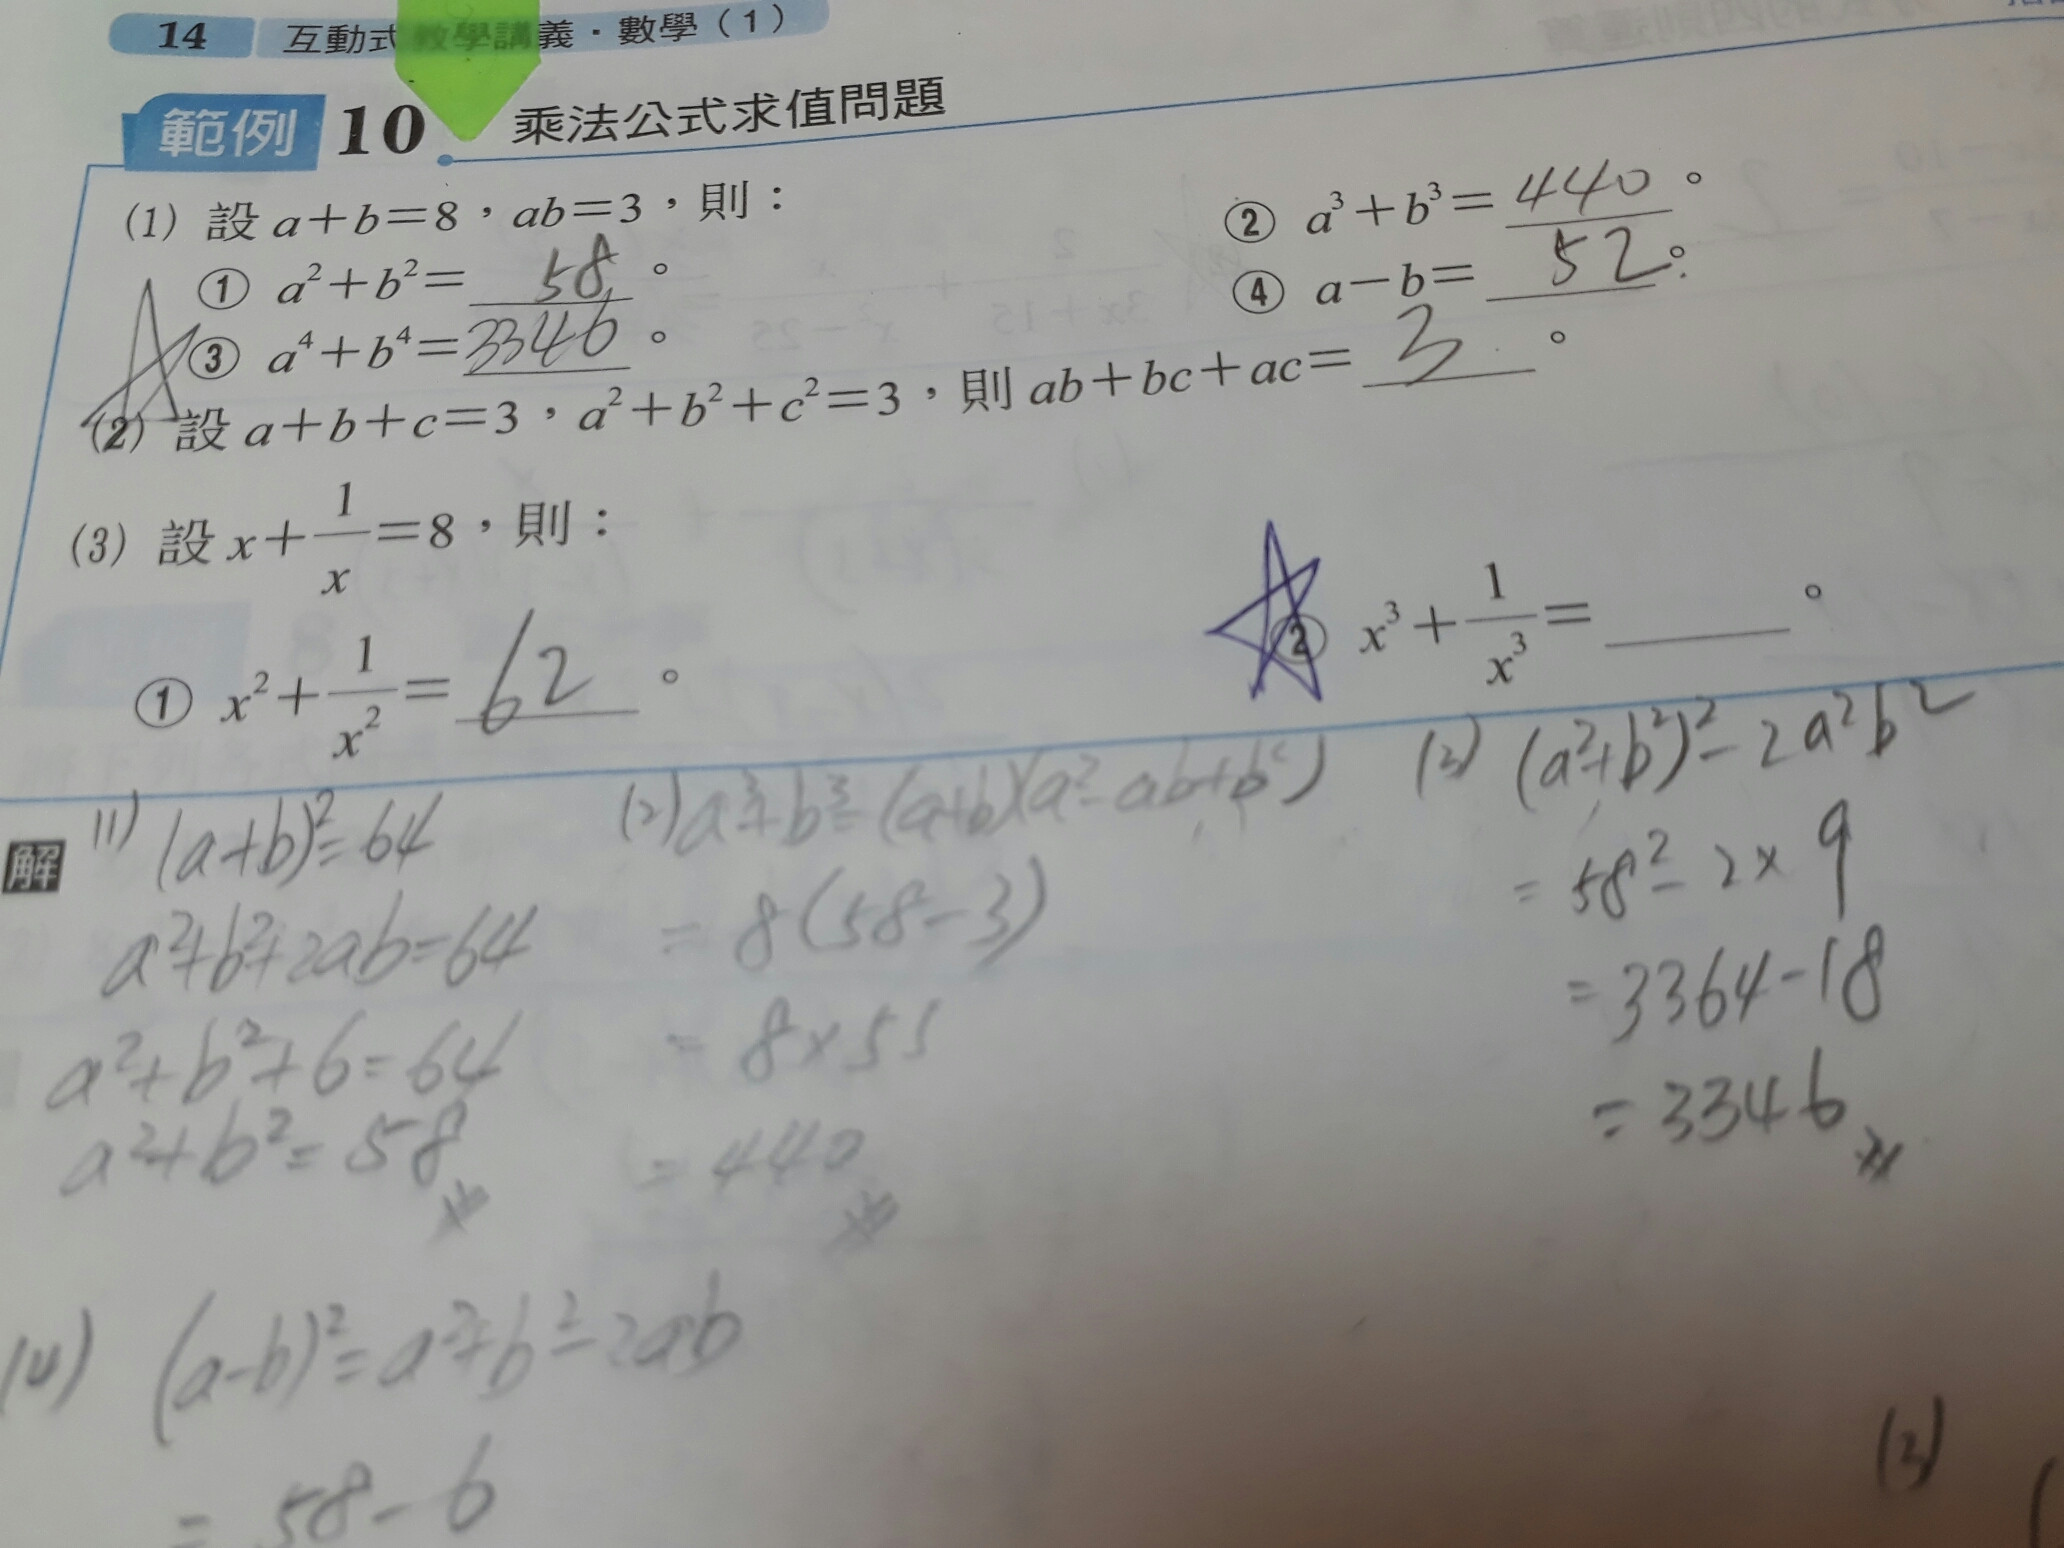 14 互動式教學講義·數學(1)
範例 10 乘法公式求值問題
(1) 設 a+b=8，ab=3，則：
① a²+b²= 58 。 ② a³+b³= 440 。
③ a⁴+b⁴= 3346 。 ④ a−b= 52 。
(2) 設 a+b+c=3，a²+b²+c²=3，則 ab+bc+ac= 3 。
(3) 設 x+1/x=8，則：
① x²+1/x²= 62 。 ② x³+1/x³=____。
解
(1) (a+b)²=64
a²+b²+2ab=64
a²+b²+6=64
a²+b²=58
(2) a³+b³=(a+b)(a²-ab+b²)
=8(58-3)
=8×55
=440
(3) (a²+b²)²-2a²b²
=58²-2×9
=3364-18
=3346
(4) (a-b)²=a²+b²-2ab
=58-6
(3)
(